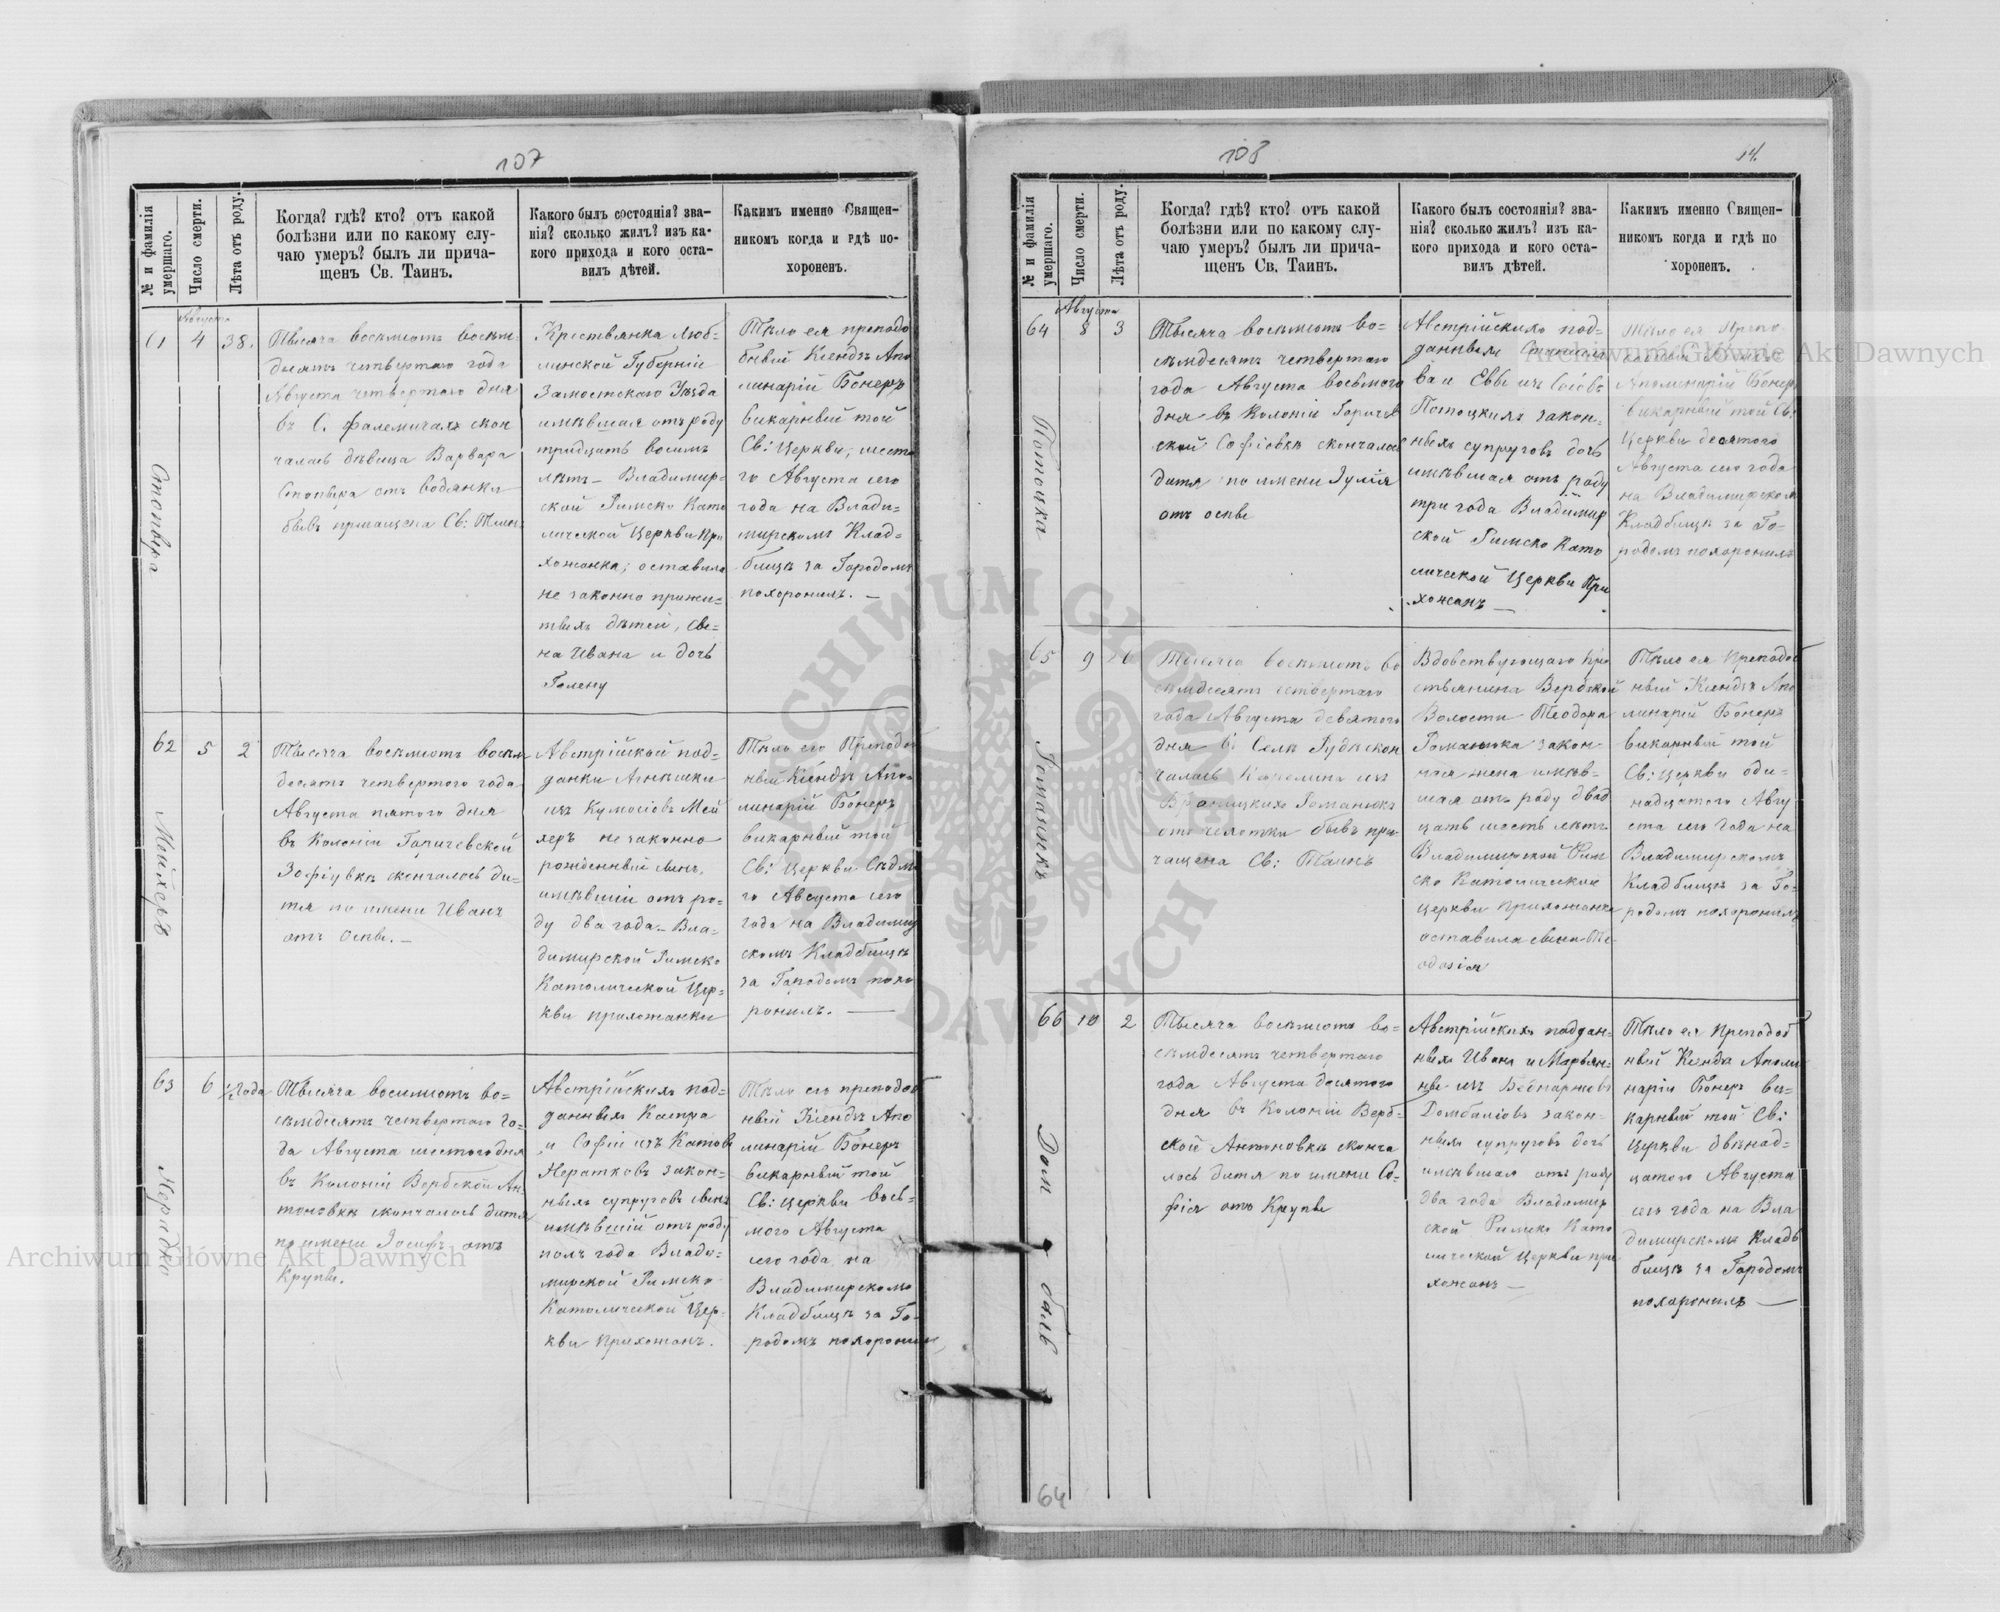 107
№ и фамилія умершаго.
Число смерти.
Лѣта отъ роду.
Когда? гдѣ? кто? отъ какой
болѣзни или по какому слу-
чаю умеръ? былъ ли прича-
щенъ Св. Таинъ.
Какого былъ состоянія? зва-
нія? сколько жилъ? изъ ка-
кого прихода и кого оста-
вилъ дѣтей.
Какимъ именно Священ-
никомъ когда и гдѣ по-
хороненъ.
Августа
61 4 38.
Тысяча восемьсотъ восем
десятъ четвертаго года
Августа четвертаго дня
въ С. Фалемичахъ скон
чалась дѣвица Варвара
отъ водянки
бывъ причащена Св: Таинъ
Крестьянка Люб-
линской Губерніи
Замостскаго Уѣзда
имѣвшая отъ роду
тридцать восемь
лѣтъ – Владимир-
ской Римско Като
лической Церкви При
хожанка; оставила
не законно прижи-
тыхъ дѣтей, сы-
на Ивана и дочь
Гелену
Тѣло ея преподо
бный Ксендзъ Апо
линарій Бонеръ
викарный той
Св: Церкви, шесто
го Августа сего
года на Влади-
мирскомъ Клад-
бищѣ за Городомъ
похоронилъ. —
62 5 2
Мейхеръ
Тысяча восемьсотъ восем
десятъ четвертого года
Августа пятого дня
въ Колоніи Горичевской
Зофіувкѣ скончалось ди-
тя по имени Иванъ
отъ Оспы. –
Австрійской под-
данки Агнешки
изъ Кумосіовъ Мей
херъ не законно
рожденный сынъ,
имѣвшій отъ ро-
ду два года – Вла-
димирской Римско
Католической Цер-
кви прихожанки
Тѣло его Преподоб
ный Ксендзъ Апо-
линарій Бонеръ
викарный той
Св: Церкви Седьмо
го Августа сего
года на Владимир
скомъ Кладбищѣ
за Городомъ похо
ронилъ. —
63 6 ½ года
Нератко
Тысяча восемьсотъ во-
семдесятъ четвертого го-
да Августа шестого дня
въ Колоніи Вербской Ан-
тоновкѣ скончалось дитя
по имени Іосифъ отъ
Крупы.
Австрійскихъ под-
данныхъ Каспра
и Софіи изъ
Нератковъ закон-
ныхъ супруговъ сынъ
имѣвшій отъ роду
полъ года Влади-
мирской Римско
Католической Цер-
кви Прихожанъ.
Тѣло его преподоб
ный Ксендзъ Апо
линарій Бонеръ
викарный той
Св: Церкви вось-
мого Августа
сего года на
Владимирскомъ
Кладбищѣ за Го-
родомъ похоронилъ
108
14.
№ и фамилія умершаго.
Число смерти.
Лѣта отъ роду.
Когда? гдѣ? кто? отъ какой
болѣзни или по какому слу-
чаю умеръ? былъ ли прича-
щенъ Св. Таинъ.
Какого былъ состоянія? зва-
нія? сколько жилъ? изъ ка-
кого прихода и кого оста-
вилъ дѣтей.
Какимъ именно Священ-
никомъ когда и гдѣ по
хороненъ.
Августа
64 8 3
Потоцка
Тысяча восемьсотъ во-
семдесятъ четвертого
года Августа восьмого
дня въ Колоніи Горичев
ской Софіовкѣ скончалось
дитя по имени Іулія
отъ оспы
Австрійскихъ под-
данныхъ Станисла
ва и Евы изъ
Потоцкихъ закон-
ныхъ супруговъ дочь
имѣвшая отъ роду
три года Владимир
ской Римско Като
лической Церкви При
хожанъ —
Тѣло ея Препо-
Аполинарій Бонеръ
викарный той Св:
Церкви десятого
Августа сего года
на Владимирскомъ
Кладбищѣ за Го-
родомъ похоронилъ
65 9 26
Романюкъ
Тысяча восемьсотъ во
семдесятъ четвертаго
года Августа девятого
дня въ Селѣ Рудѣ скон
чалась Каролина изъ
Враницкихъ Романюкъ
отъ чахотки бывъ при-
чащена Св: Таинъ
Вдовствующаго Кре
стьянина Вербской
Волости Теодора
Романюка закон-
ная жена имѣв-
шая отъ роду двад
цать шесть лѣтъ
Владимирской Рим
ско Католической
Церкви Прихожанка
оставила сына Те-
одозія
Тѣло ея Преподоб
ный Ксендзъ Апо
линарій Бонеръ
викарный той
Св: Церкви оди-
надцатого Авгу
ста сего года на
Владимирскомъ
Кладбищѣ за Го-
родомъ похоронилъ
66 10 2
Домбаль
Тысяча восемьсотъ во-
семдесятъ четвертаго
года Августа десятого
дня въ Колоніи Верб-
ской Антоновкѣ сконча
лось дитя по имени Со-
фія отъ Крупы
Австрійскихъ поддан-
ныхъ Ивана и Марьян-
ны изъ Беднаржовъ
Домбаліовъ закон-
ныхъ супруговъ дочь
имѣвшая отъ роду
два года Владимир
ской Римско Като
лической Церкви при
хожанъ —
Тѣло ея Преподоб
ный Ксендзъ Аполи
нарій Бонеръ ви-
карный той Св:
Церкви двѣнад-
цатого Августа
сего года на Вла
димирскомъ Кладъ
бищѣ за Городомъ
похоронилъ —
64
Archiwum Główne Akt Dawnych
Archiwum Główne Akt Dawnych
ARCHIWUM GŁÓWNE AKT DAWNYCH